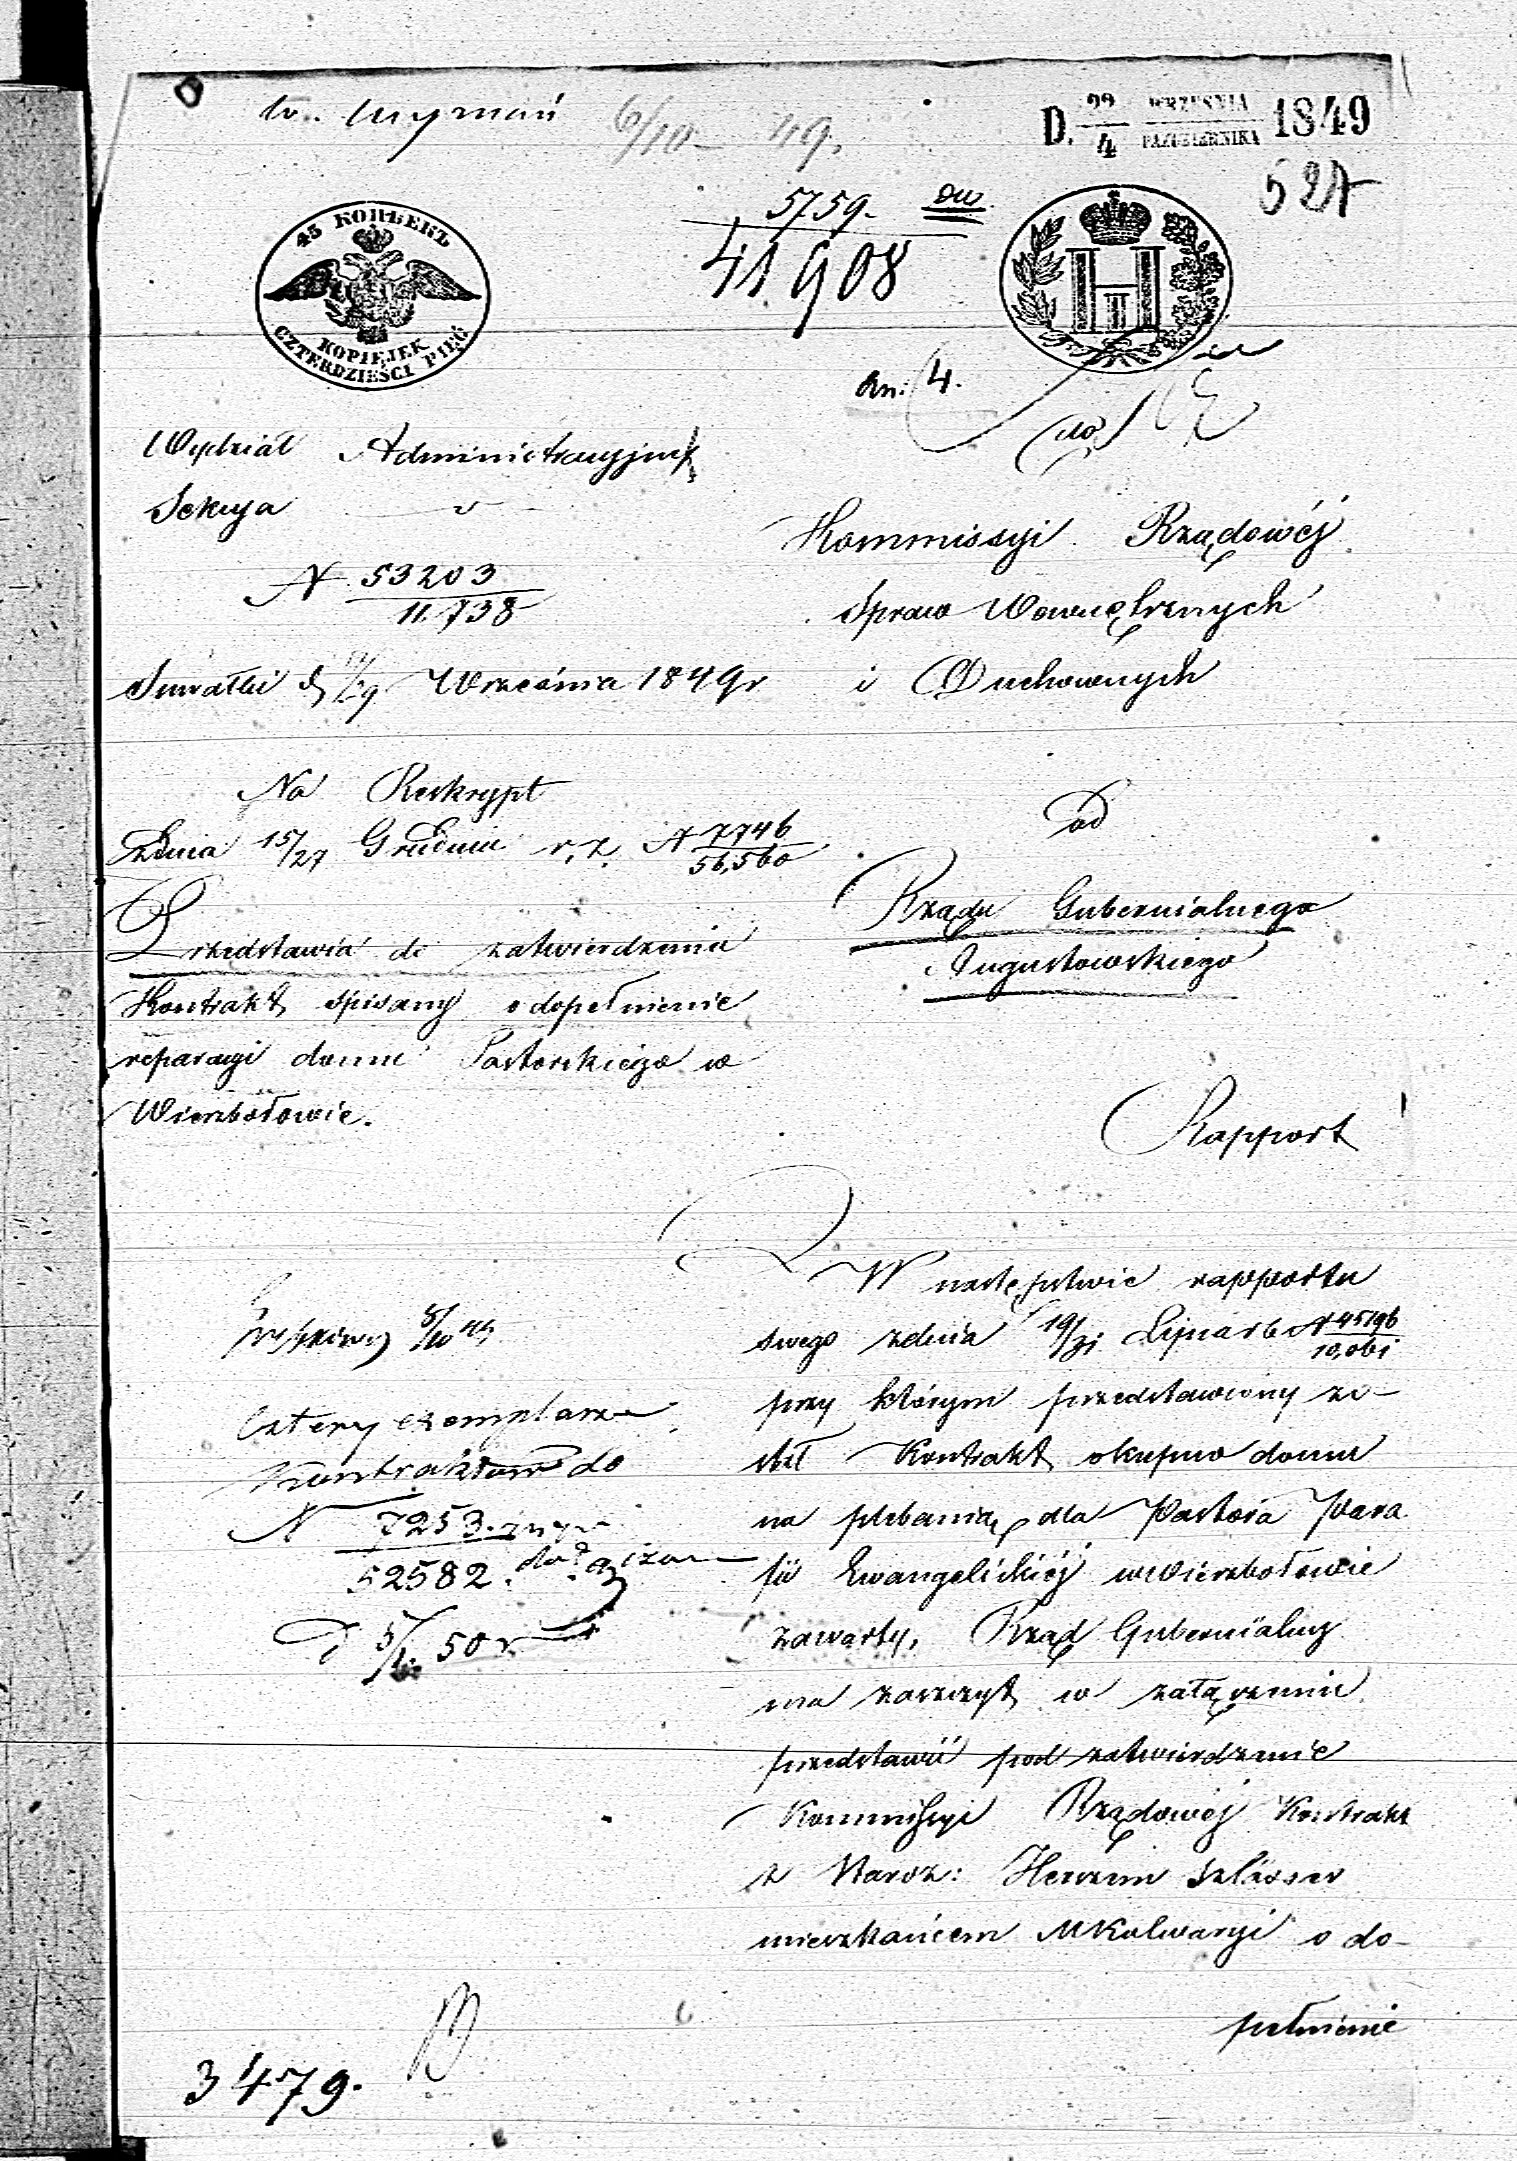 6/10 49.
D. 22/4 WRZEŚNIA/PAZDZIERNIKA 1849
527
5759.
41908
45 КОПѢЕКЪ
KOPIEJEK
CZTERDZIEŚCI PIĘĆ
an: 4.
do
Wydział Administracyjny
Sekcya
N 53203/11.738
Suwałki d. 17/29 Września 1849 r
Kommissyi Rządowéj
Spraw Wewnętrznych
i Duchownych
Na Reskrypt
z dnia 15/27 Grudnia r. z. N 7746/56,560
Przedstawia do zatwierdzenia
Kontrakt spisany o dopełnienie
reparacyi domu Pastorskiego w
Wierzbołowie.
od
Rządu Gubernialnego
Augustowskiego
Rapport
W następstwie rapportu
swego z dnia 19/31 Lipca r b N 45196/10,061
przy którym przedstawiony zo-
stał Kontrakt o kupno domu
na plebanią dla Pastora Para
fii Ewangelickiéj w Wierzbołowie
zawarty, Rząd Gubernialny
ma zaszczyt w załączeniu
przedstawić pod zatwierdzenie
Kommissyi Rządowéj Kontrakt
z Staroz: Herszem Szlosser
mieszkańcem M Kalwaryi o do-
pełnienie
8/10 49
Cztery exemplarze
Kontraktów do
N 7253/52582 dołączone
D 5/1 50 r
3479.